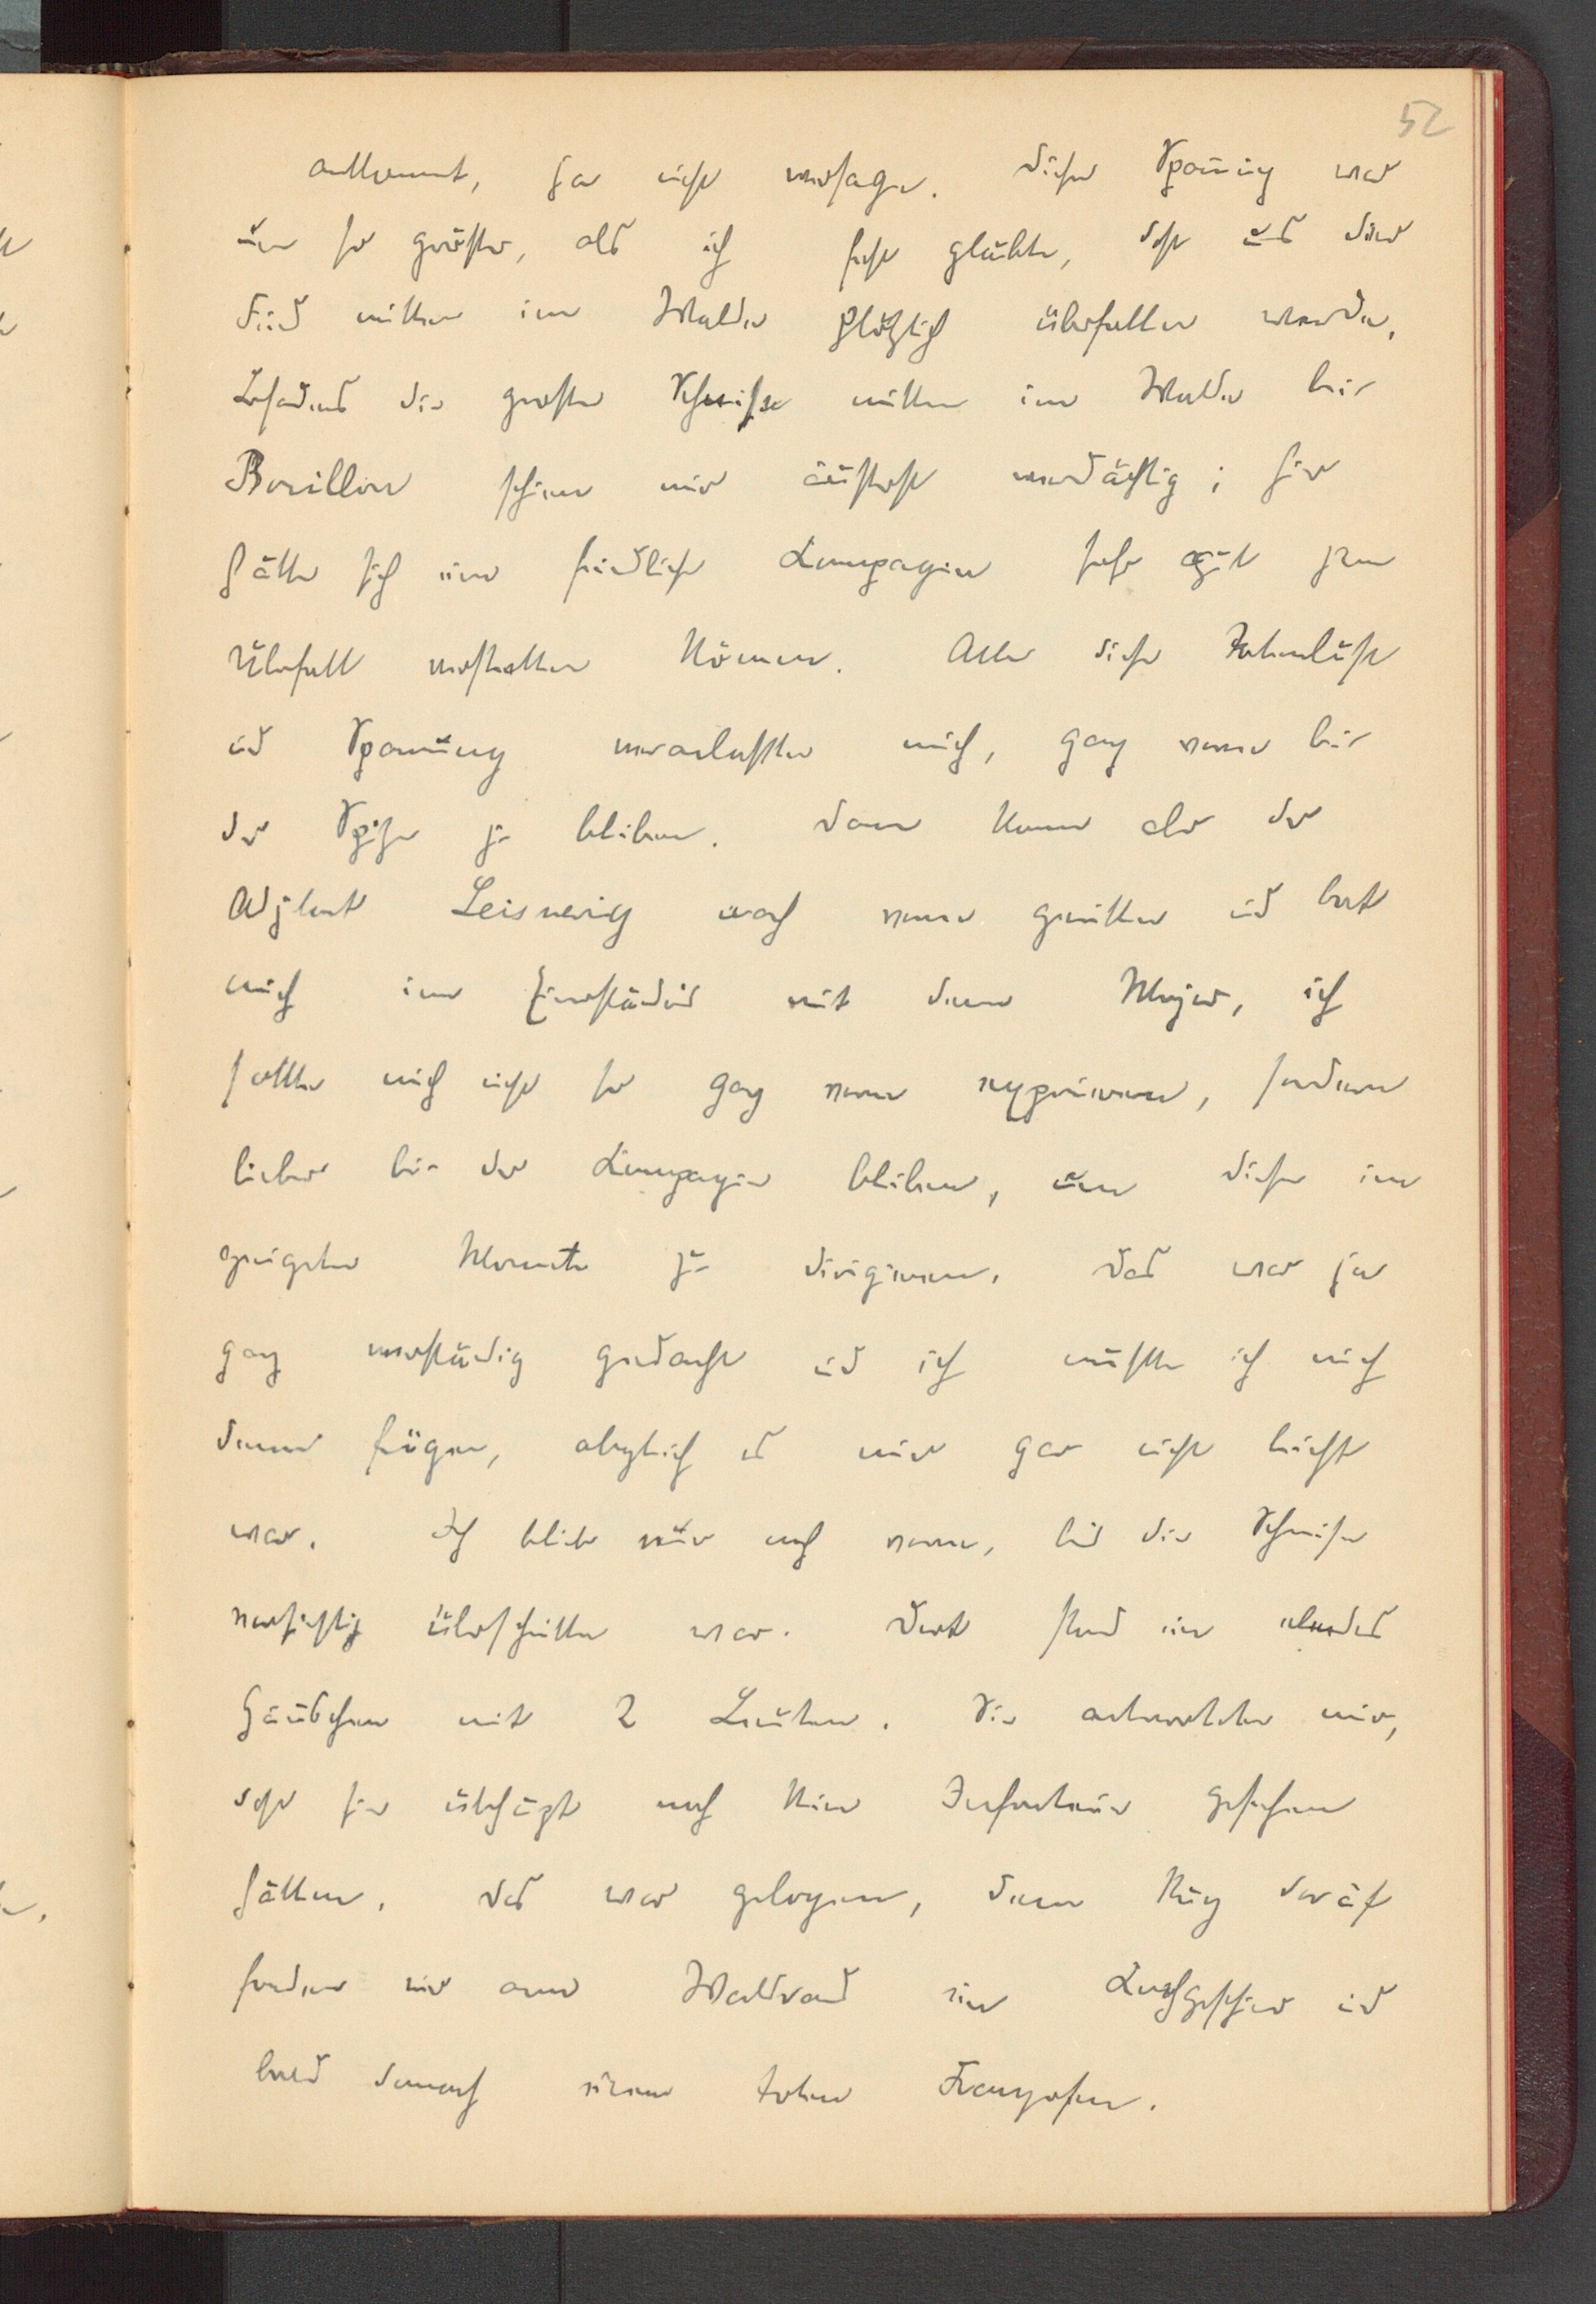 52
antkommt, gar nicht versagen. Diese Spannung war
um so größer, als ich fest glaubte, daß uns der
Feind mitten im Walde plötzlich überfallen werde.
Besonders die große Schneise mitten im Walde bei
Bouillon schien mir äußerst verdächtig; hier
hätte sich eine feindliche Kompagnie sehr gut zum
Überfall verstecken können. Alle diese Tatenlust
und Spannung veranlaßten mich, ganz vorne bei
der Spitze zu bleiben. Dann kam aber der
Adjutant Leisnerig nach vorne geritten und bat
mich im Einverständnis mit dem Major, ich
sollte mich nicht so ganz vorne exponieren, sondern
lieber bei der Kompagnie bleiben, um diese im
geeigneten Momente zu dirigieren. Das war ja
ganz verständig gedacht und ich mußte ich mich
dem fügen, obgleich es mir gar nicht leicht
war. Ich blieb nur noch vorne, bis die Schneise
vorsichtig überschritten war. Dort stand ein elendes
Häuschen mit 2 Leuten. Sie antworteten mir,
daß sie überhaupt noch keine Infanterie gesehen
hätten. Das war gelogen, denn kurz darauf
fanden wir am Waldrand ein Kochgeschirr und
bald danach einen toten Franzosen.